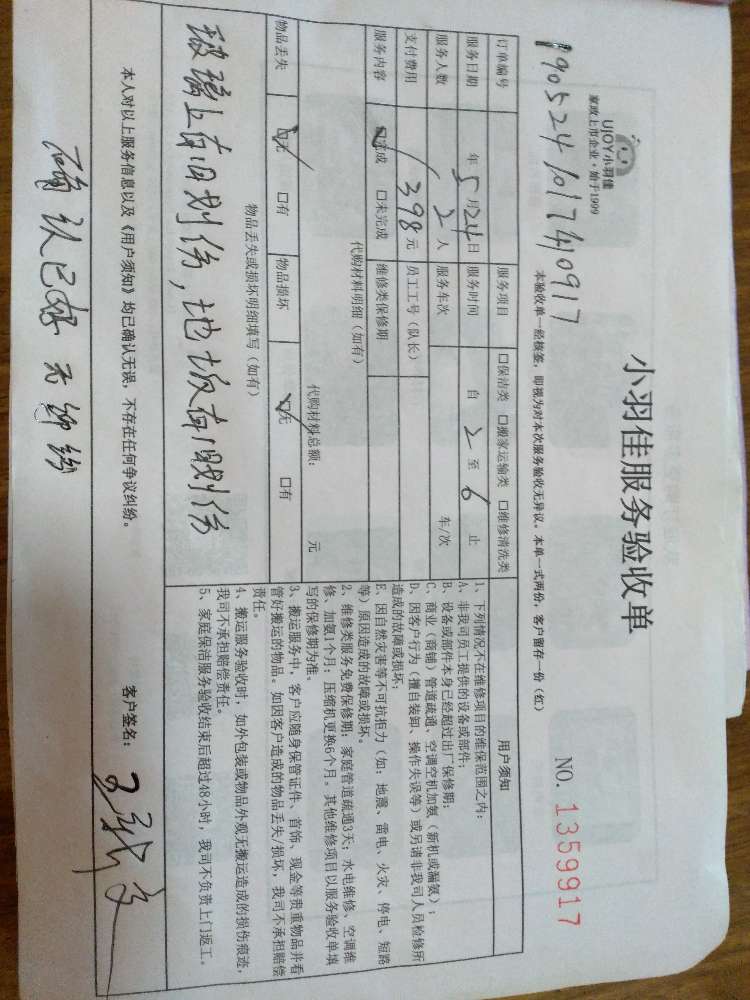 UJOY小羽佳
家政上市企业·始于1999
小羽佳服务验收单
NO. 1359917
本验收单一经核签,即视为对本次服务验收无异议。本单一式两份,客户留存一份(红)
订单编号 190524101740917
服务项目 □保洁类 □搬家运输类 □维修清洗类
服务日期 年5月24日 服务时间 自 2 至 6 止
服务人数 2人 服务车次 车/次
支付费用 398元 员工工号(队长)
服务内容 ☑完成 □未完成 维修类保修期
代购材料明细(如有)
代购材料总额: 元
物品丢失 ☑无 □有 物品损坏 ☑无 □有
物品丢失或损坏明细填写(如有)
玻璃上有旧划伤,地板有旧划伤
用户须知
1、下列情况不在维修项目的维保范围之内:
A、非我司员工提供的设备或部件;
B、设备或部件本身已经超过出厂保修期;
C、商业(商铺)管道疏通、空调空机加氨(新机或漏氨);
D、因客户行为(擅自装卸、操作失误等)或另请非我司人员检修所
造成的故障或损坏;
E、因自然灾害等不可抗拒力(如:地震、雷电、火灾、停电、短路
等)原因造成的故障或损坏。
2、维修类服务免费保修期:家庭管道疏通3天;水电维修、空调维
修、加氨1个月;压缩机更换6个月。其他维修项目以服务验收单填
写的保修期为准。
3、搬运服务中,客户应随身保管证件、首饰、现金等贵重物品并看
管好搬运的物品。如因客户造成的物品丢失/损坏,我司不承担赔偿
责任。
4、搬运服务验收时,如外包装或物品外观无搬运造成的损伤痕迹,
我司不承担赔偿责任。
5、家庭保洁服务验收结束后超过48小时,我司不负责上门返工。
本人对以上服务信息以及《用户须知》均已确认无误,不存在任何争议纠纷。
客户签名:
确认已好 无纠纷